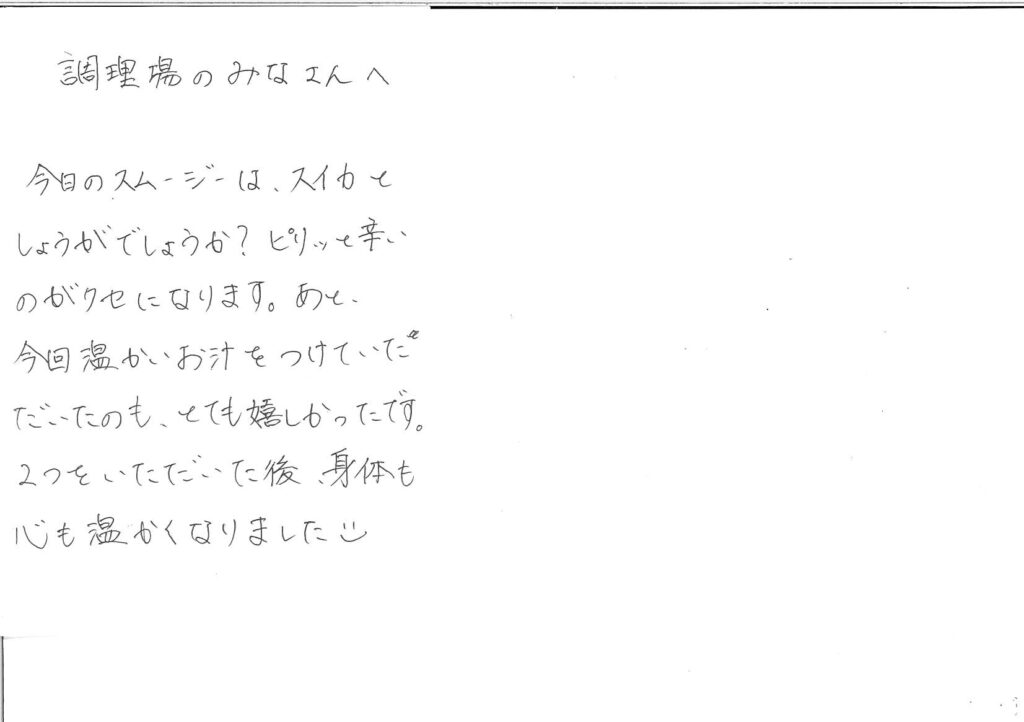 調理場のみなさんへ
今日のスムージーは、スイカと
しょうがでしょうか？ピリッと辛い
のがクセになります。あと、
今回温かいお汁をつけていた
だいたのも、とても嬉しかったです。
2つをいただいた後、身体も
心も温かくなりました